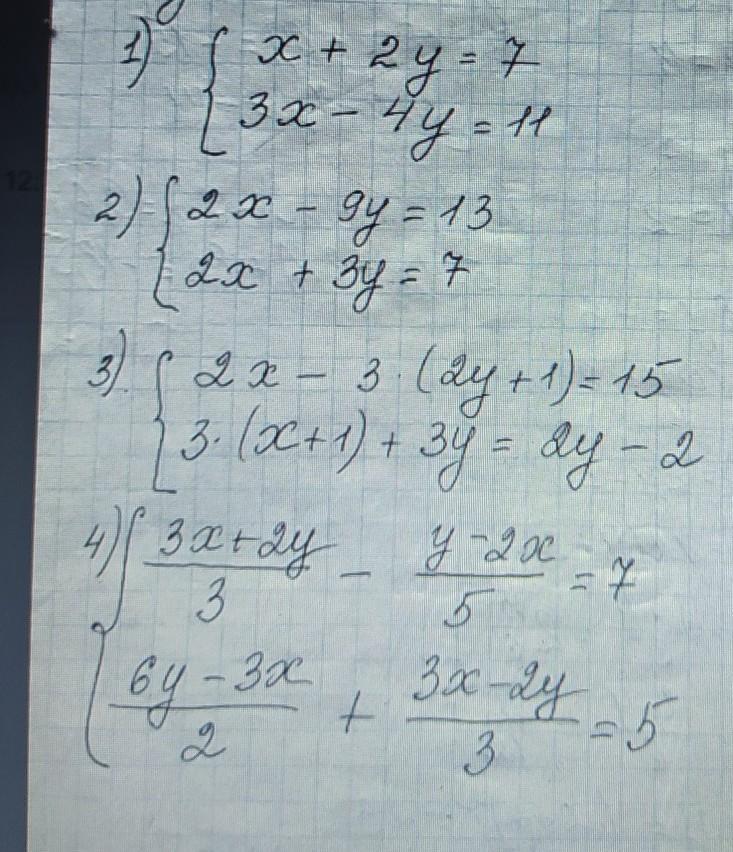 1) { x + 2y = 7
3x - 4y = 11
2) { 2x - 9y = 13
2x + 3y = 7
3) { 2x - 3 · (2y + 1) = 15
3 · (x + 1) + 3y = 2y - 2
4) { (3x + 2y)/3 - (y - 2x)/5 = 7
(6y - 3x)/2 + (3x - 2y)/3 = 5